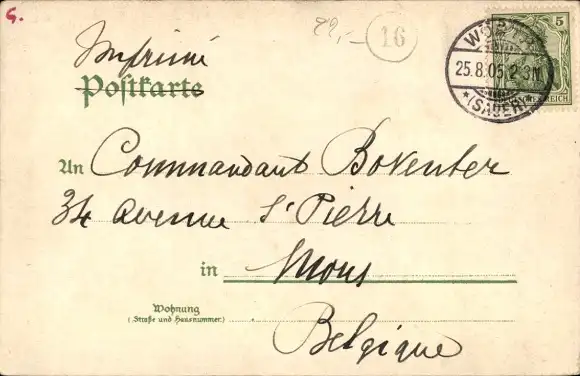 S.
22,-
16
Imprimé
Postkarte
WÖRTH
25.8.05. 2-3N.
*(SAUER)*
5
REICH
An Commandant Boventer
34 Avenue St Pierre
in Mons
Wohnung
(Straße und Hausnummer)
Belgique